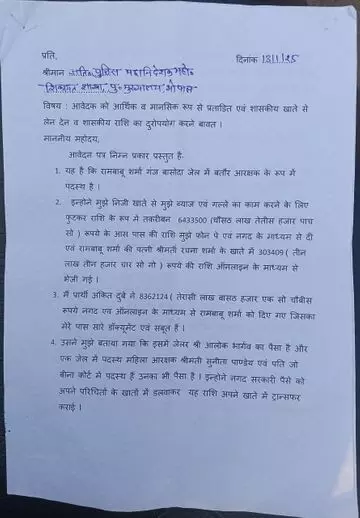 प्रति,
दिनांक 13/1/25
श्रीमान पुलिस महानिदेशक महोदय
शिकायत शाखा, पु० मुख्यालय, भोपाल
विषय : आवेदक को आर्थिक व मानसिक रूप से प्रताडित एवं शासकीय खाते से
लेन देन व शासकीय राशि का दुरोपयोग करने बावत ।
माननीय महोदय,
आवेदन पत्र निम्न प्रकार प्रस्तुत है-
1. यह है कि रामबाबू शर्मा गंज बासोदा जेल में बतौर आरक्षक के रूप में
पदस्थ है ।
2. इन्होने मुझे निजी खाते से मुझे ब्याज एवं गल्ले का काम करने के लिए
फुटकर राशि के रूप मे तकरीबन 6433500 (चौंसठ लाख तेतीस हजार पाच
सो ) रूपये के आस पास की राशि मुझे फोन पे एवं नगद के माध्यम से दी
एवं रामबाबू शर्मा की पत्नी श्रीमती रचना शर्मा के खाते में 303409 ( तीन
लाख तीन हजार चार सो नो ) रूपये की राशि ऑनलाइन के माध्यम से
भेजी गई ।
3. मैं पार्थी अंकित दुबे ने 8362124 ( तेरासी लाख बासठ हजार एक सो चौबीस
रूपये नगद एवं ऑनलाइन के माध्यम से रामबाबू शर्मा को दिए गए जिसका
मेरे पास सारे डॉक्यूमेंट एवं सबूत है ।
4. उसने मुझे बताया गया कि इसमें जेलर श्री आलोक भार्गव का पैसा है और
एक जेल में पदस्थ महिला आरक्षक श्रीमती सुनीता पाण्डेय एवं पति जो
बीना कोर्ट में पदस्थ हैं उनका भी पैसा है । इन्होने नगद सरकारी पैसे को
अपने परिचितों के खातों में डलवाकर यह राशि अपने खाते में ट्रान्सफर
कराई ।